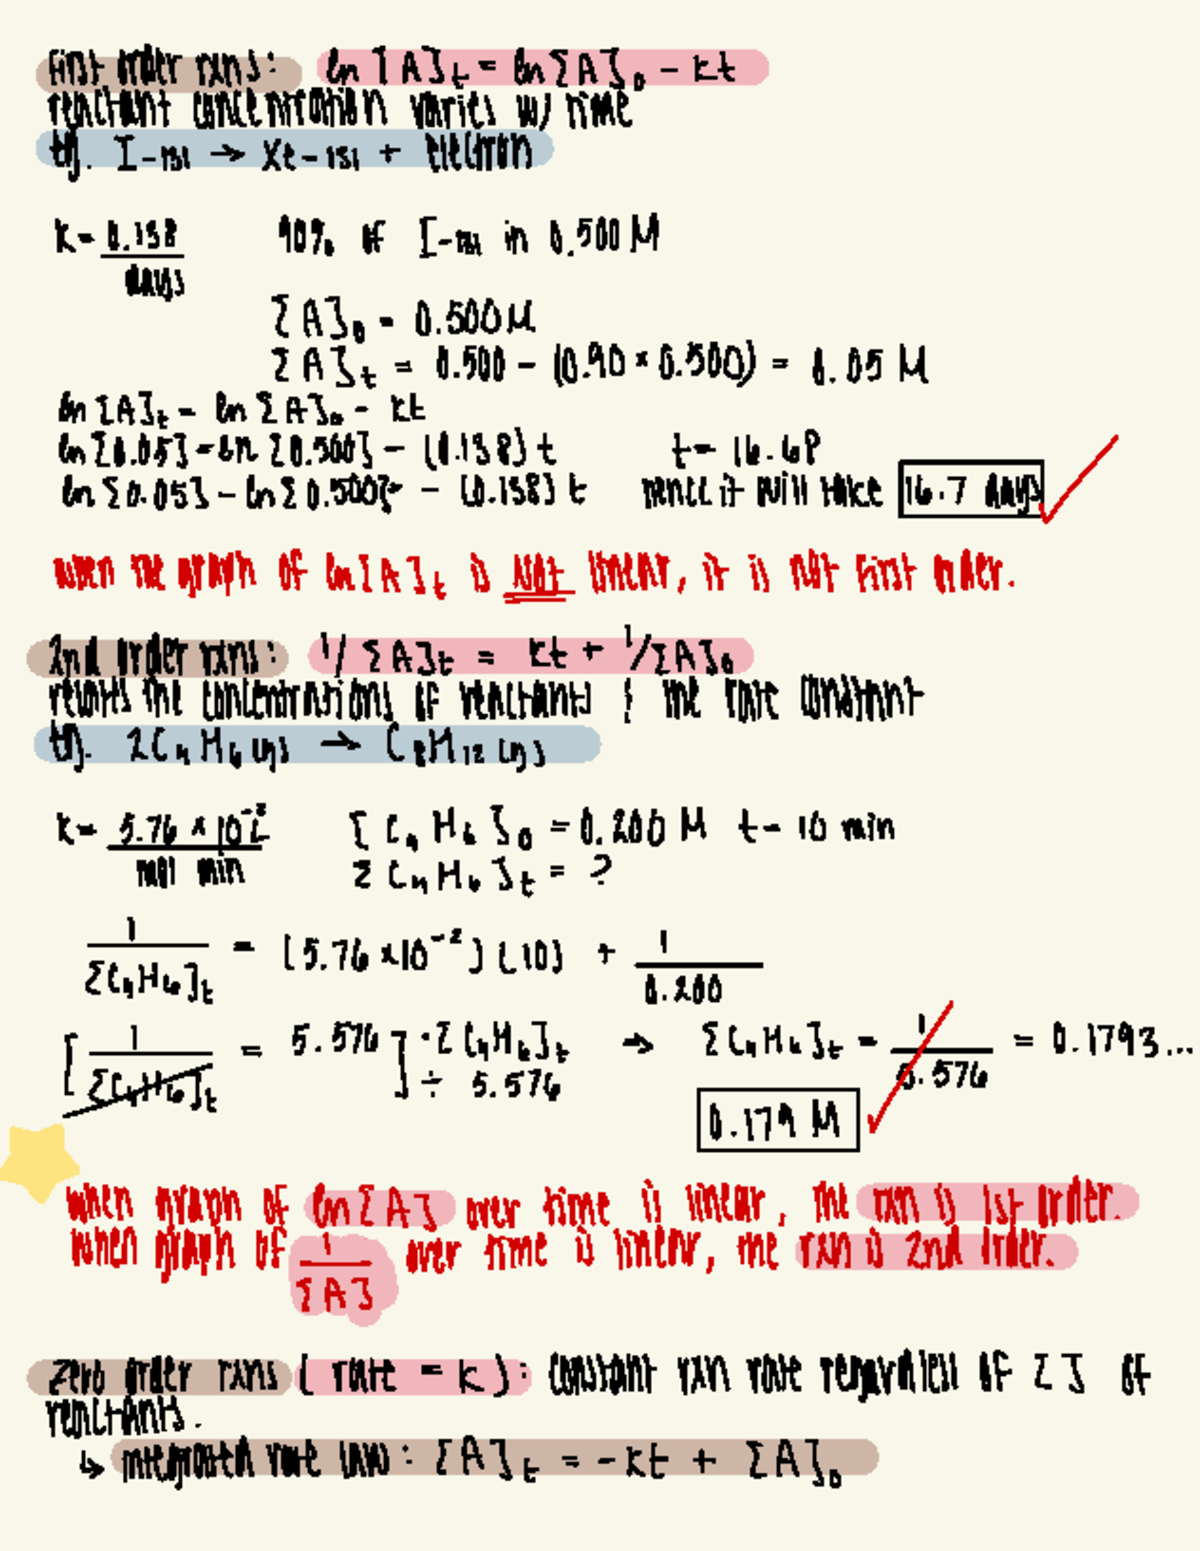 First order rxns: ln[A]t = ln[A]₀ - kt
reactant concentration varies w/ time
Eg. I-131 → Xe-131 + electron
k = 0.138 / days 90% of I-131 in 0.500 M
[A]₀ = 0.500 M
[A]t = 0.500 - (0.90 × 0.500) = 0.05 M
ln[A]t = ln[A]₀ - kt
ln[0.05] = ln[0.500] - (0.138)t t = 16.68
ln[0.05] - ln[0.500] = - (0.138)t hence it will take 16.7 days
when the graph of ln[A]t is NOT linear, it is not first order.
2nd order rxns: 1/[A]t = kt + 1/[A]₀
relates the concentrations of reactants & the rate constant
Eg. 2C₄H₆(g) → C₈H₁₂(g)
k = 5.76 × 10⁻² L / mol min [C₄H₆]₀ = 0.200 M t = 10 min
[C₄H₆]t = ?
1/[C₄H₆]t = (5.76 × 10⁻²)(10) + 1/0.200
[1/[C₄H₆]t = 5.576] · [C₄H₆]t ÷ 5.576 → [C₄H₆]t = 1/5.576 = 0.1793...
0.179 M
when graph of ln[A] over time is linear, the rxn is 1st order.
when graph of 1/[A] over time is linear, the rxn is 2nd order.
Zero order rxns (rate = k): constant rxn rate regardless of [ ] of
reactants.
↳ integrated rate law: [A]t = -kt + [A]₀